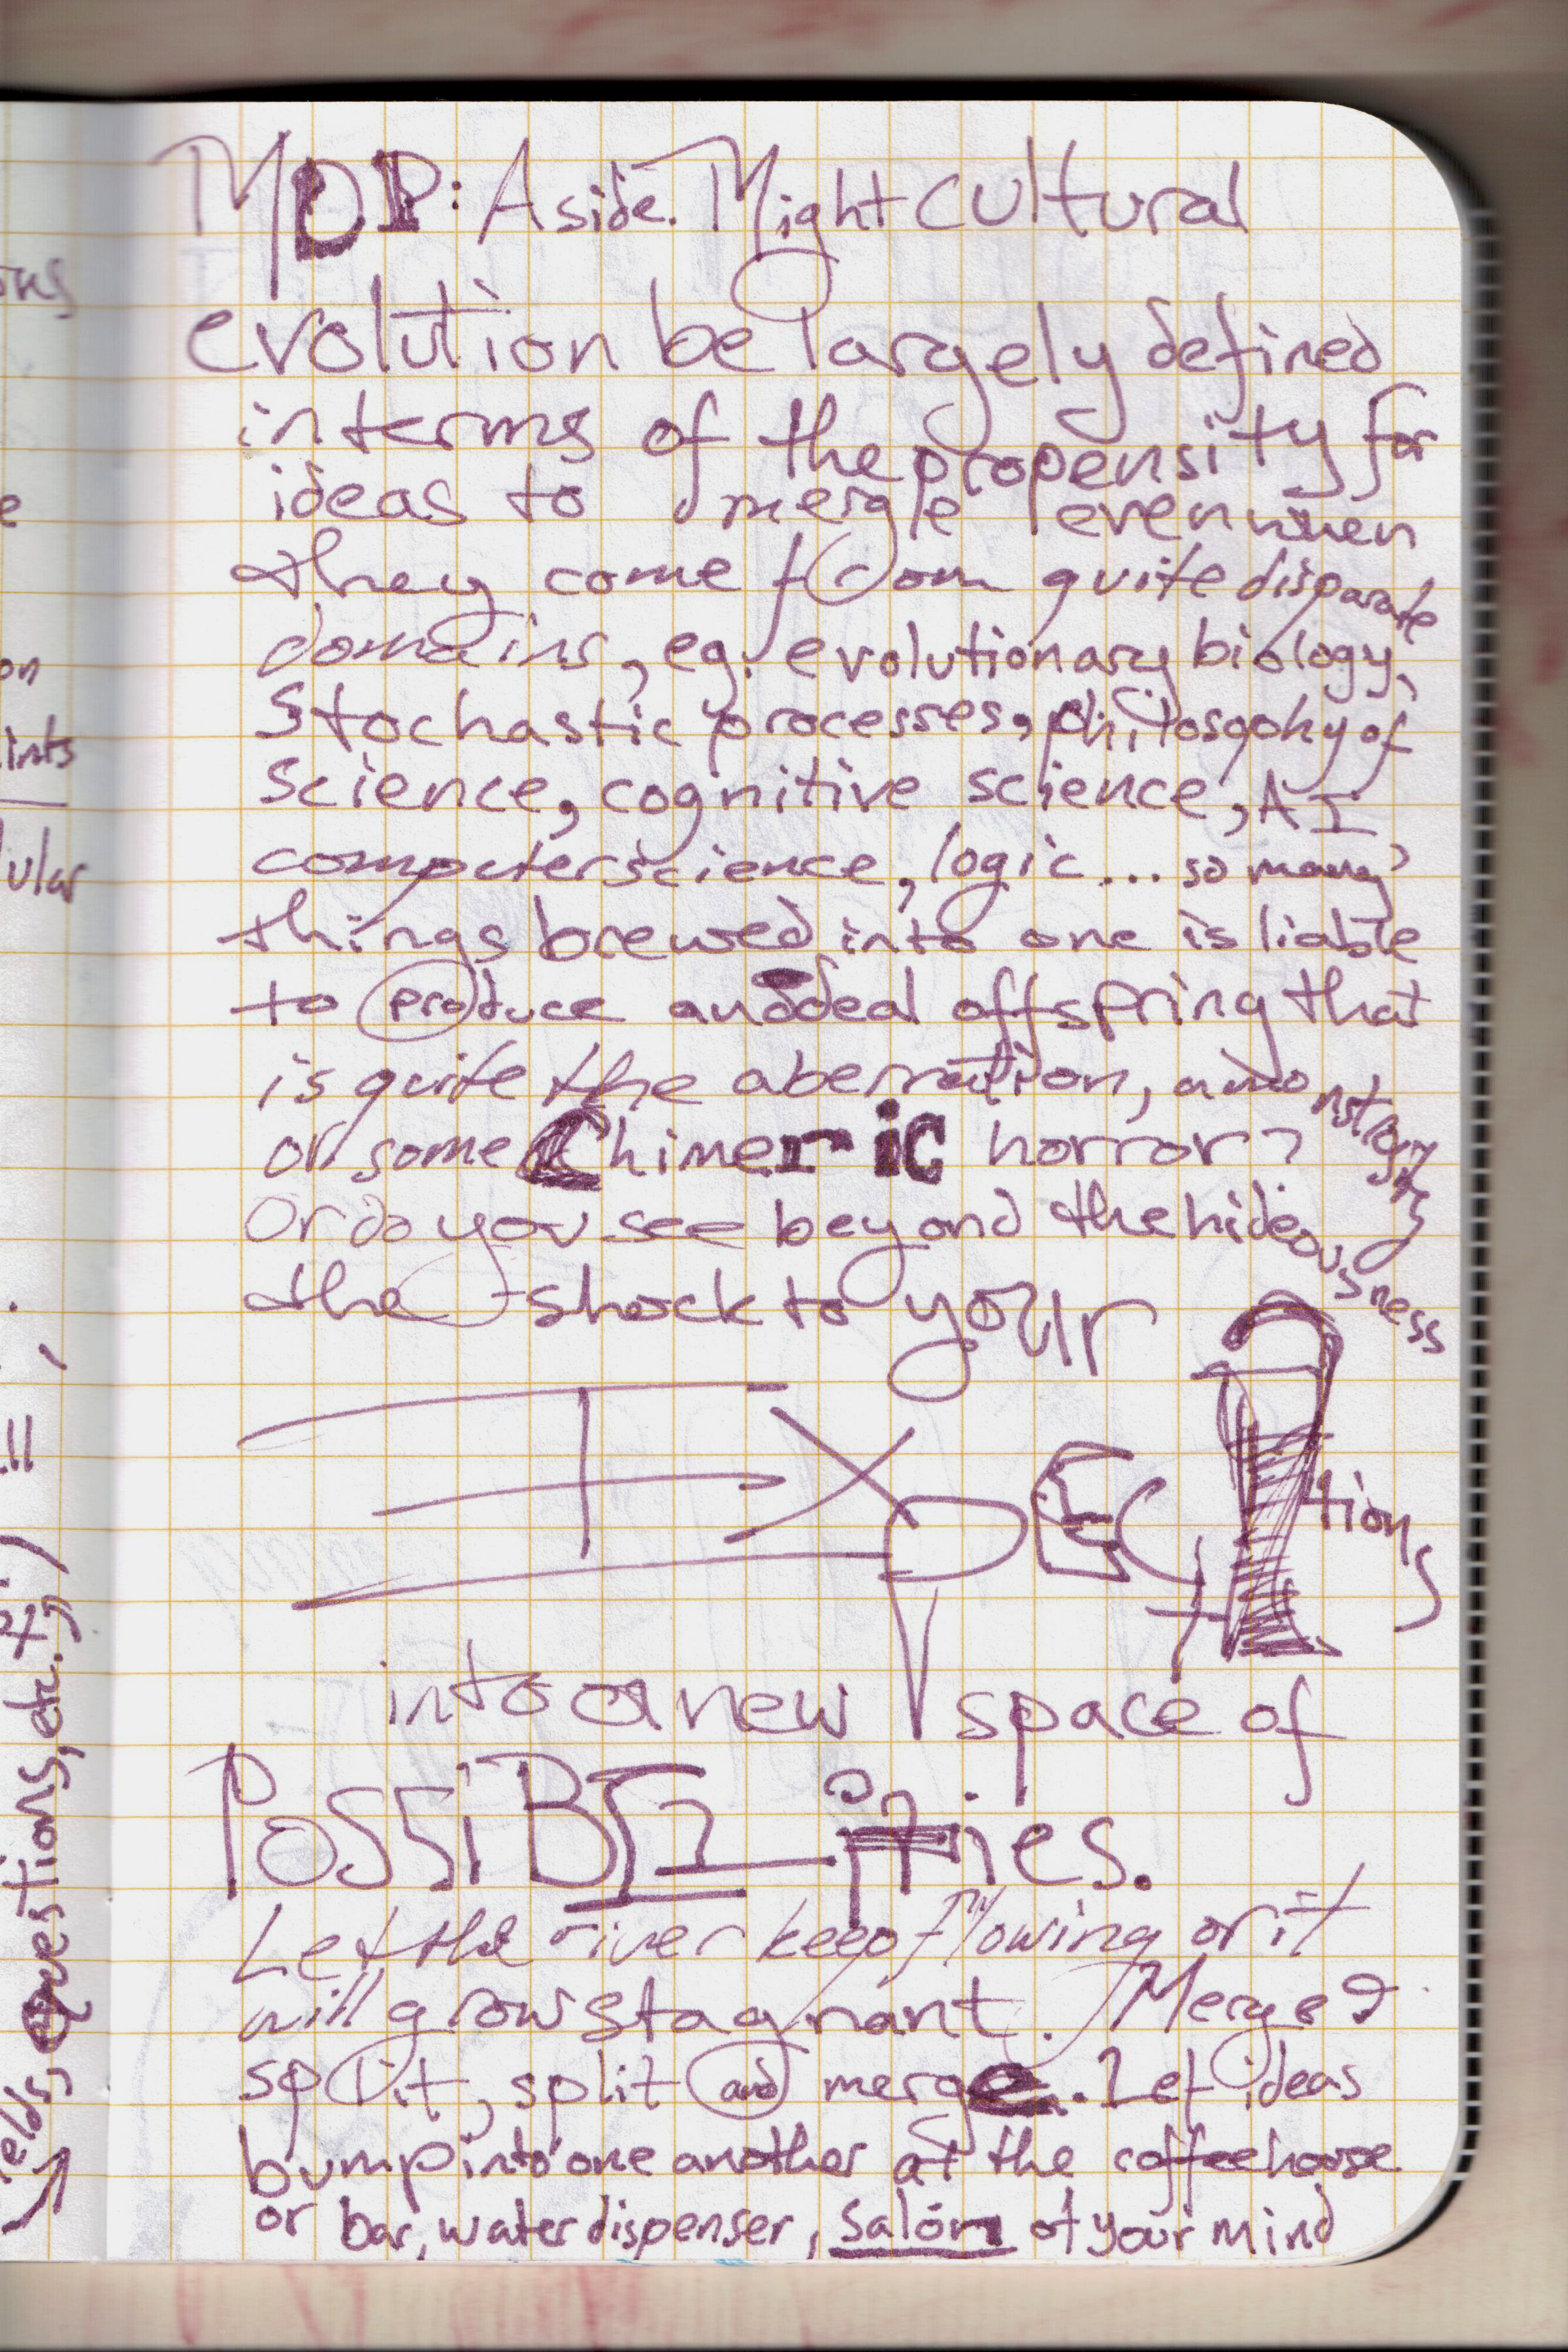 MDP: Aside. Might cultural
evolution be largely defined
in terms of the propensity for
ideas to merge even when
they come from quite disparate
domains, eg. evolutionary biology,
stochastic processes, philosophy of
science, cognitive science, AI,
computer science, logic... so many
things brewed into one is liable
to produce an ideal offspring that
is quite the aberration, a monstrosity
or some Chimeric horror?
Or do you see beyond the hideousness
the shock to your
EXPECtations
into a new space of
POSSiBILities.
Let the river keep flowing or it
will grow stagnant. Merge &
split, split and merge. Let ideas
bump into one another at the coffeehouse
or bar, water dispenser, salon of your mind
on
ints
ular